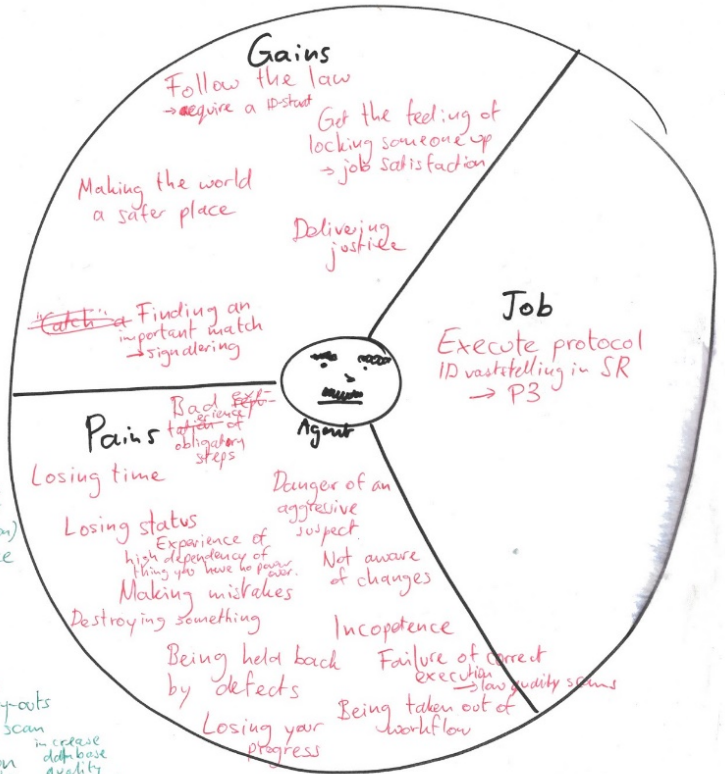 Gains
Follow the law
→ require a ID-start
Get the feeling of
locking someone up
→ job satisfaction
Making the world
a safer place
Delivering
justice
"Catch a Finding an
important match
→ signalering
Job
Execute protocol
ID vaststelling in SR
→ P3
Agent
Pains
Bad
erience
of
obligatory
steps
Losing time
Danger of an
aggresive
suspect.
Losing status
Experience of
high dependency of
thing you have no power
over.
Not aware
of changes
Making mistakes
Destroying something
Incopetence
Being held back
by defects
Failure of correct
execution
→ low quality scans
Being taken out of
workflow
Losing your
progress
y-outs
scan
increase
database
quality